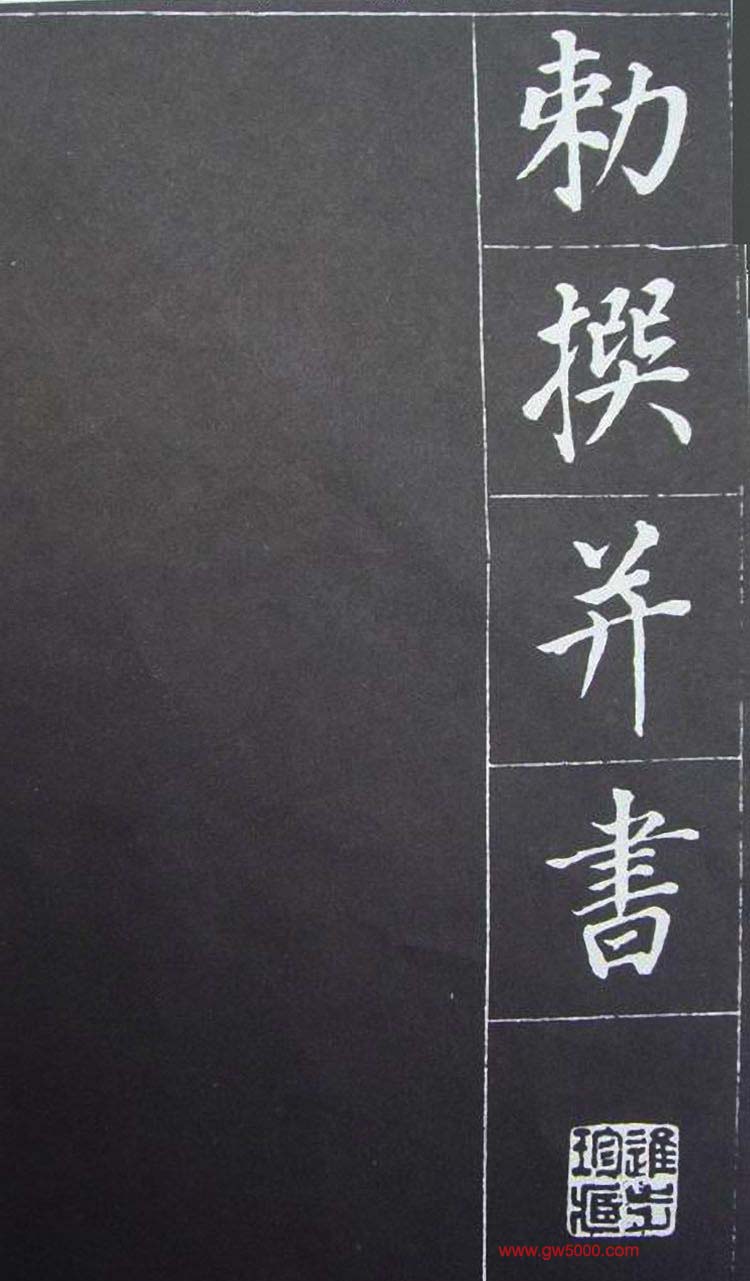 勅撰并書
www.gw5000.com